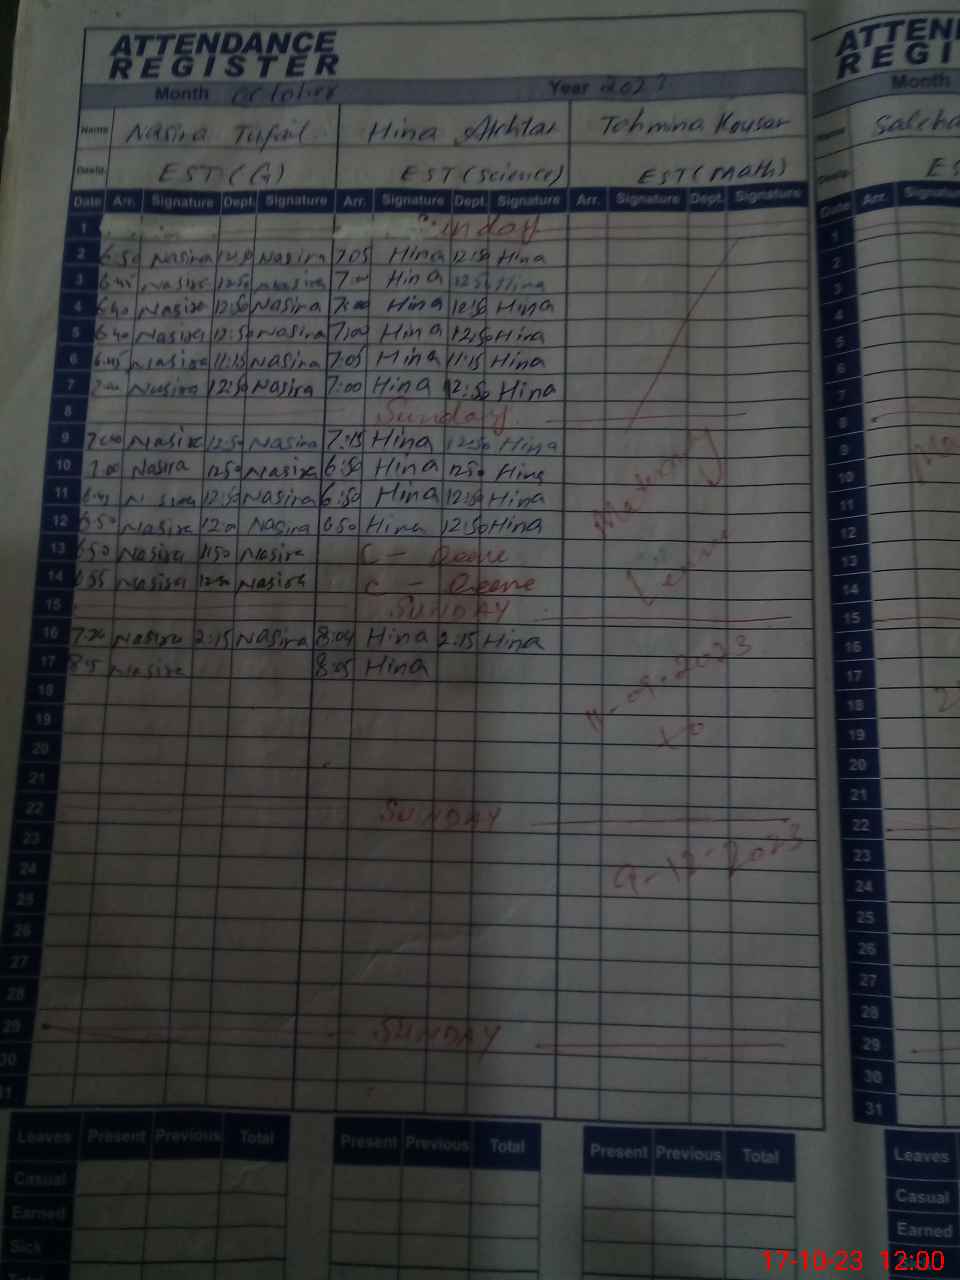 ATTENDANCE REGISTER ATTEN
REGI
Month October Year 2023 Month
Name Nasira Tufail Hina Akhtar Tahmina Kousar Name
Desig. EST (G) EST (Science) EST (Math) Desig. ES
Date Arr. Signature Dept. Signature Arr. Signature Dept. Signature Arr. Signature Dept. Signature Date Arr. Signature
1 Sunday 1
2 6:50 Nasira 12:50 Nasira 7:05 Hina 12:50 Hina 2
3 6:45 Nasira 12:50 Nasira 7:00 Hina 12:50 Hina 3
4 6:40 Nasira 12:50 Nasira 7:00 Hina 12:50 Hina 4
5 6:40 Nasira 12:50 Nasira 7:00 Hina 12:50 Hina 5
6 6:45 Nasira 11:15 Nasira 7:05 Hina 11:15 Hina 6
7 7:00 Nasira 12:50 Nasira 7:00 Hina 12:50 Hina 7
8 Sunday 8
9 7:00 Nasira 12:50 Nasira 7:15 Hina 12:50 Hina Maternity 9
10 7:00 Nasira 12:50 Nasira 6:50 Hina 12:50 Hina 10
11 6:45 Nasira 12:50 Nasira 6:50 Hina 12:50 Hina 11
12 6:50 Nasira Nasira 6:50 Hina 12:50 Hina 12
13 6:50 Nasira 11:50 Nasira C - Leave Leave 13
14 6:55 Nasira Nasira C - Leave 14
15 SUNDAY 15
16 Nasira 2:15 Nasira 8:04 Hina 2:15 Hina 16
17 Nasira 8:05 Hina 09.2023 17
18 18
19 to 19
20 20
21 21
22 SUNDAY 22
23 9-12-2023 23
24 24
25 25
26 26
27 27
28 28
29 SUNDAY 29
30 30
31 31
Leaves Present Previous Total Present Previous Total Present Previous Total Leaves
Casual Casual
Earned Earned
Sick
17-10-23 12:00